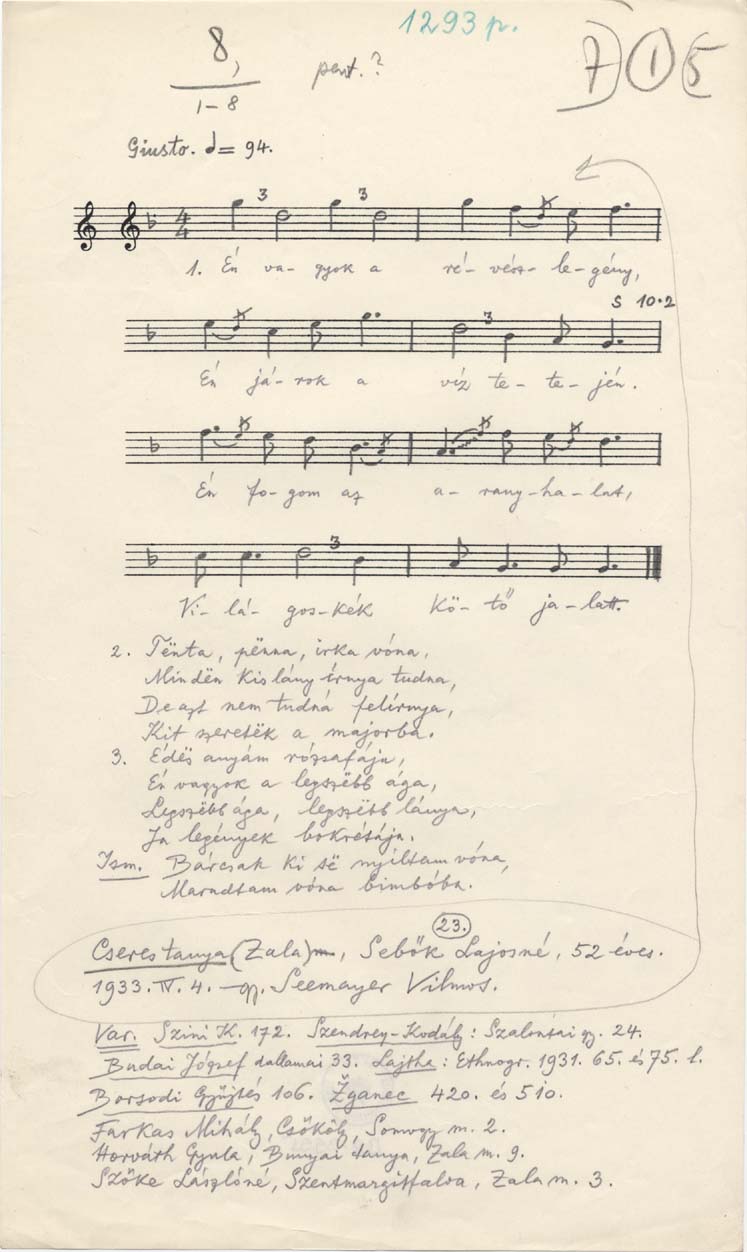 1293 p.
8, pent.? 7 1 5
1-8
Giusto. = 94.
3 3
4
4
1. Én va- gyok a ré- vész- le- gény,
S 10·2
3
Én já- rok a víz te- te- jén.
Én fo- gom az a- rany- ha- lat,
3
Vi- lá- gos- kék Kö- tő ja- latt.
2. Tënta, pënna, irka vóna,
Mindën kislány írnya tudna,
De azt nem tudná felírnya,
Kit szeretëk a majorba.
3. Édës anyám rózsafája,
Én vagyok a legszëbb ága,
Legszëbb ága, legszëbb lánya,
Ja legények bokrétája.
Ism. Bárcsak ki së nyíltam vóna,
Maradtam vóna bimbóba.
23.
Cseres tanya (Zala), Sebők Lajosné, 52 éves.
1933. IV. 4. – gy. Seemayer Vilmos.
Var. Szini K. 172. Szendrey-Kodály: Szalontai gy. 24.
Budai József dallamai 33. Lajtha: Ethnogr. 1931. 65. és 75. l.
Borsodi Gyűjtés 106. Žganec 420. és 510.
Farkas Mihály, Csököly, Somogy m. 2.
Horváth Gyula, Bunyai tanya, Zala m. 9.
Szőke Lászlóné, Szentmargitfalva, Zala m. 3.